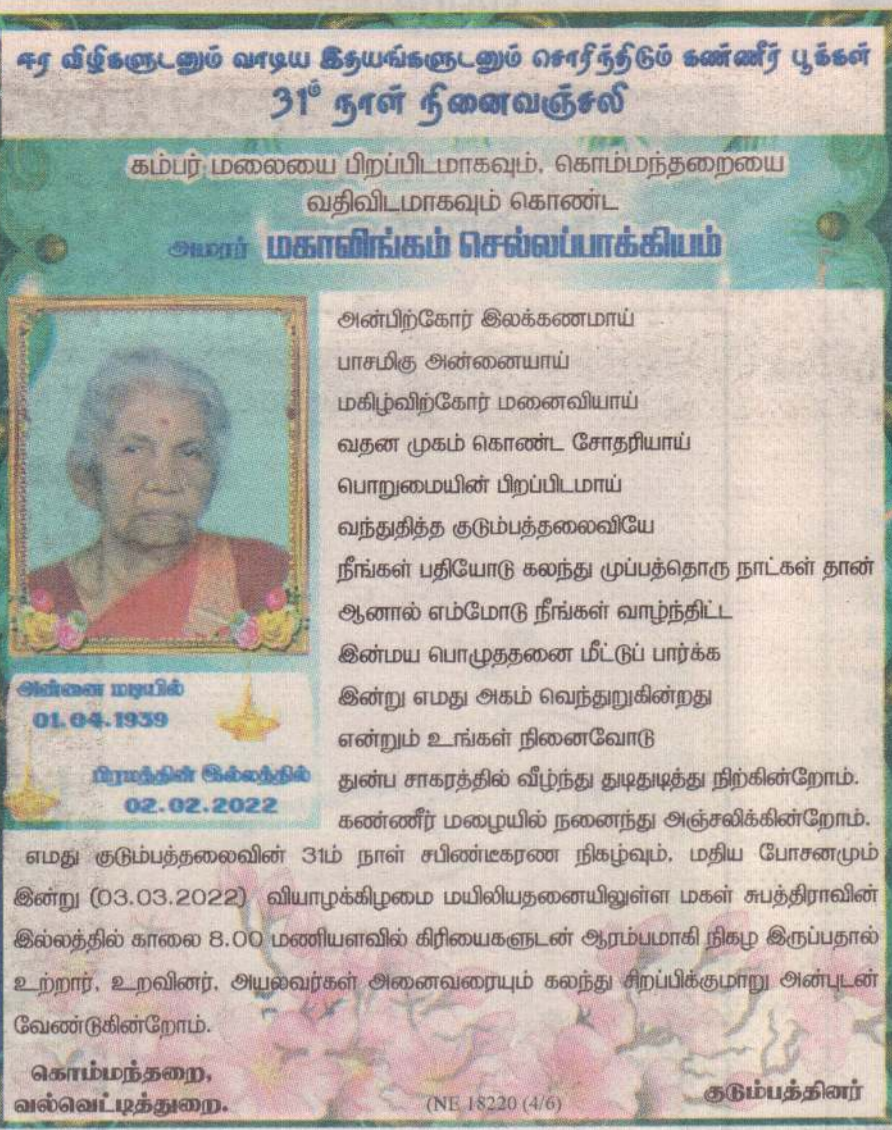 ஈர விழிகளுடனும் வாடிய இதயங்களுடனும் சொரிந்திடும் கண்ணீர் பூக்கள்
31ம் நாள் நினைவஞ்சலி
கம்பர் மலையை பிறப்பிடமாகவும், கொம்மந்தறையை
வதிவிடமாகவும் கொண்ட
அமரர் மகாலிங்கம் செல்லப்பாக்கியம்
அன்பிற்கோர் இலக்கணமாய்
பாசமிகு அன்னையாய்
மகிழ்விற்கோர் மனைவியாய்
வதன முகம் கொண்ட சோதரியாய்
பொறுமையின் பிறப்பிடமாய்
வந்துதித்த குடும்பத்தலைவியே
நீங்கள் பதியோடு கலந்து முப்பத்தொரு நாட்கள் தான்
ஆனால் எம்மோடு நீங்கள் வாழ்ந்திட்ட
இன்மய பொழுததனை மீட்டுப் பார்க்க
இன்று எமது அகம் வெந்துறுகின்றது
என்றும் உங்கள் நினைவோடு
துன்ப சாகரத்தில் வீழ்ந்து துடிதுடித்து நிற்கின்றோம்.
கண்ணீர் மழையில் நனைந்து அஞ்சலிக்கின்றோம்.
அன்னை மடியில்
01.04.1939
பிரமத்தின் இல்லத்தில்
02.02.2022
எமது குடும்பத்தலைவின் 31ம் நாள் சபிண்டீகரண நிகழ்வும், மதிய போசனமும்
இன்று (03.03.2022) வியாழக்கிழமை மயிலியதனையிலுள்ள மகள் சுபத்திராவின்
இல்லத்தில் காலை 8.00 மணியளவில் கிரியைகளுடன் ஆரம்பமாகி நிகழ இருப்பதால்
உற்றார், உறவினர், அயலவர்கள் அனைவரையும் கலந்து சிறப்பிக்குமாறு அன்புடன்
வேண்டுகின்றோம்.
கொம்மந்தறை,
வல்வெட்டித்துறை.
(NE 18220 (4/6)
குடும்பத்தினர்